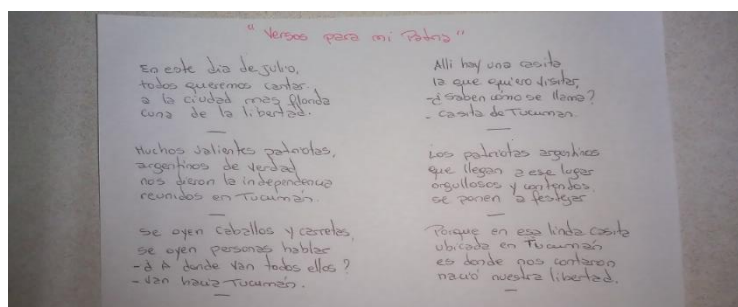 "Versos para mi Patria"
En este día de julio,
todos queremos cantar.
a la ciudad mas florida
cuna de la libertad.
Muchos valientes patriotas,
argentinos de verdad
nos dieron la independencia
reunidos en Tucumán.
Se oyen caballos y carretas,
se oyen personas hablar
-¿A donde van todos ellos?
-Van hacia Tucumán.
Alli hay una casita
la que quiero visitar,
-¿Saben como se llama?
- Casita de Tucuman.
Los patriotas argentinos
que llegan a ese lugar
orgullosos y contentos,
se ponen a festejar
Porque en esa linda casita
ubicada en Tucumán
es donde nos contaron
nació nuestra libertad.